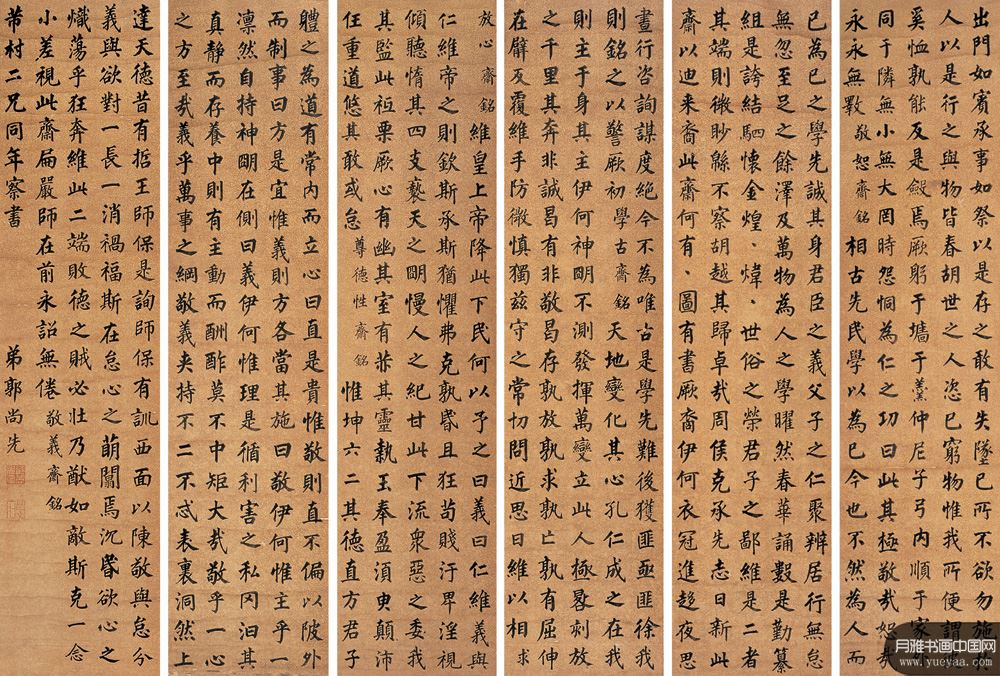 出門如賓承事如祭以是存之敢有失墜已所不欲勿施
人以是行之與物皆春胡世之人恣已窮物惟我所便謂
奚恤孰能反是歛焉厥躬于墻于羹仲尼子弓内順于家
同于隣無小無大罔時怨恫為仁之功曰此其極敬哉恕
永永無斁 敬恕齋銘 相古先民學以為已今也不然為人而
已為已之學先誠其身君臣之義父子之仁聚辨居行無怠
無忽至足之餘澤及萬物為人之學曜然春華誦數是勤纂
組是誇結駟懷金煌、煒、世俗之榮君子之鄙維是二者
其端則微眇緜不察胡越其歸卓哉周侯克承先志日新此
齋以迪来裔此齋何有、圖有書厥裔伊何衣冠進趍夜思
晝行咨詢謀度絕今不為唯古是學先難後獲匪亟匪徐我
則銘之以警厥初 學古齋銘 天地變化其心孔仁成之在我
則主于身其主伊何神明不測發揮萬變立此人極晷刻放
之千里其奔非誠曷有非敬曷存孰放孰求孰亡孰有屈伸
在臂反覆維手防微慎獨兹守之常切問近思曰維以相求
放心齋銘 維皇上帝降此下民何以予之曰義曰仁維義與
仁維帝之則欽斯承斯猶懼弗克孰昏且狂苟賤汙卑淫視
傾聽惰其四支褻天之明慢人之紀甘此下流衆惡之委我
其監此祗栗厥心有幽其室有赤其靈執玉奉盈須臾顛沛
任重道悠其敢或怠 尊德性齋銘 惟坤六二其德直方君子
體之為道有常内而立心曰直是貴惟敬則直不偏以陂外
而制事曰方是宜惟義則方各當其施曰敬伊何惟主乎一
凛然自持神明在側曰義伊何惟理是循利害之私罔汩其
真静而存養中則有主動而酬酢莫不中矩大哉敬乎一心
之方至哉義乎萬事之綱敬義夹持不二不忒表裏洞然上
達天德昔有哲王師保是詢師保有訓西面以陳敬與怠分
義與欲對一長一消禍福斯在怠心之萌闢焉沉昏欲心之
熾蕩乎狂奔維此二端敗德之賊必壮乃猷如敵斯克一念
小差視此齋扁嚴師在前永詔無倦 敬義齋銘
芾村二兄同年察書 弟郭尚先
月雅书画中国网
www.yueyaa.com